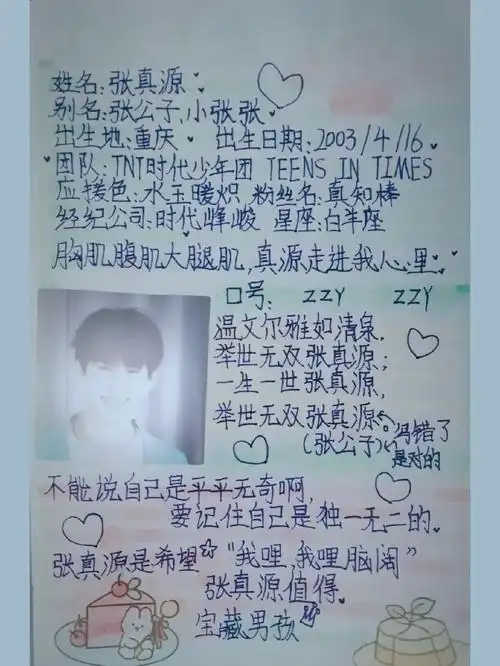 姓名:张真源
别名:张公子,小张张
出生地:重庆 出生日期:2003/4/16
团队:TNT时代少年团 TEENS IN TIMES
应援色:水玉暖炽 粉丝名:真知棒
经纪公司:时代峰峻 星座:白羊座
胸肌腹肌大腿肌,真源走进我心里
口号: ZZY ZZY
温文尔雅如清泉,
举世无双张真源;
一生一世张真源,
举世无双张真源。
(张公子)
冯错了
是对的
不能说自己是平平无奇啊,
要记住自己是独一无二的.
张真源是希望 “我哩,我哩脑阔”
张真源值得.
宝藏男孩